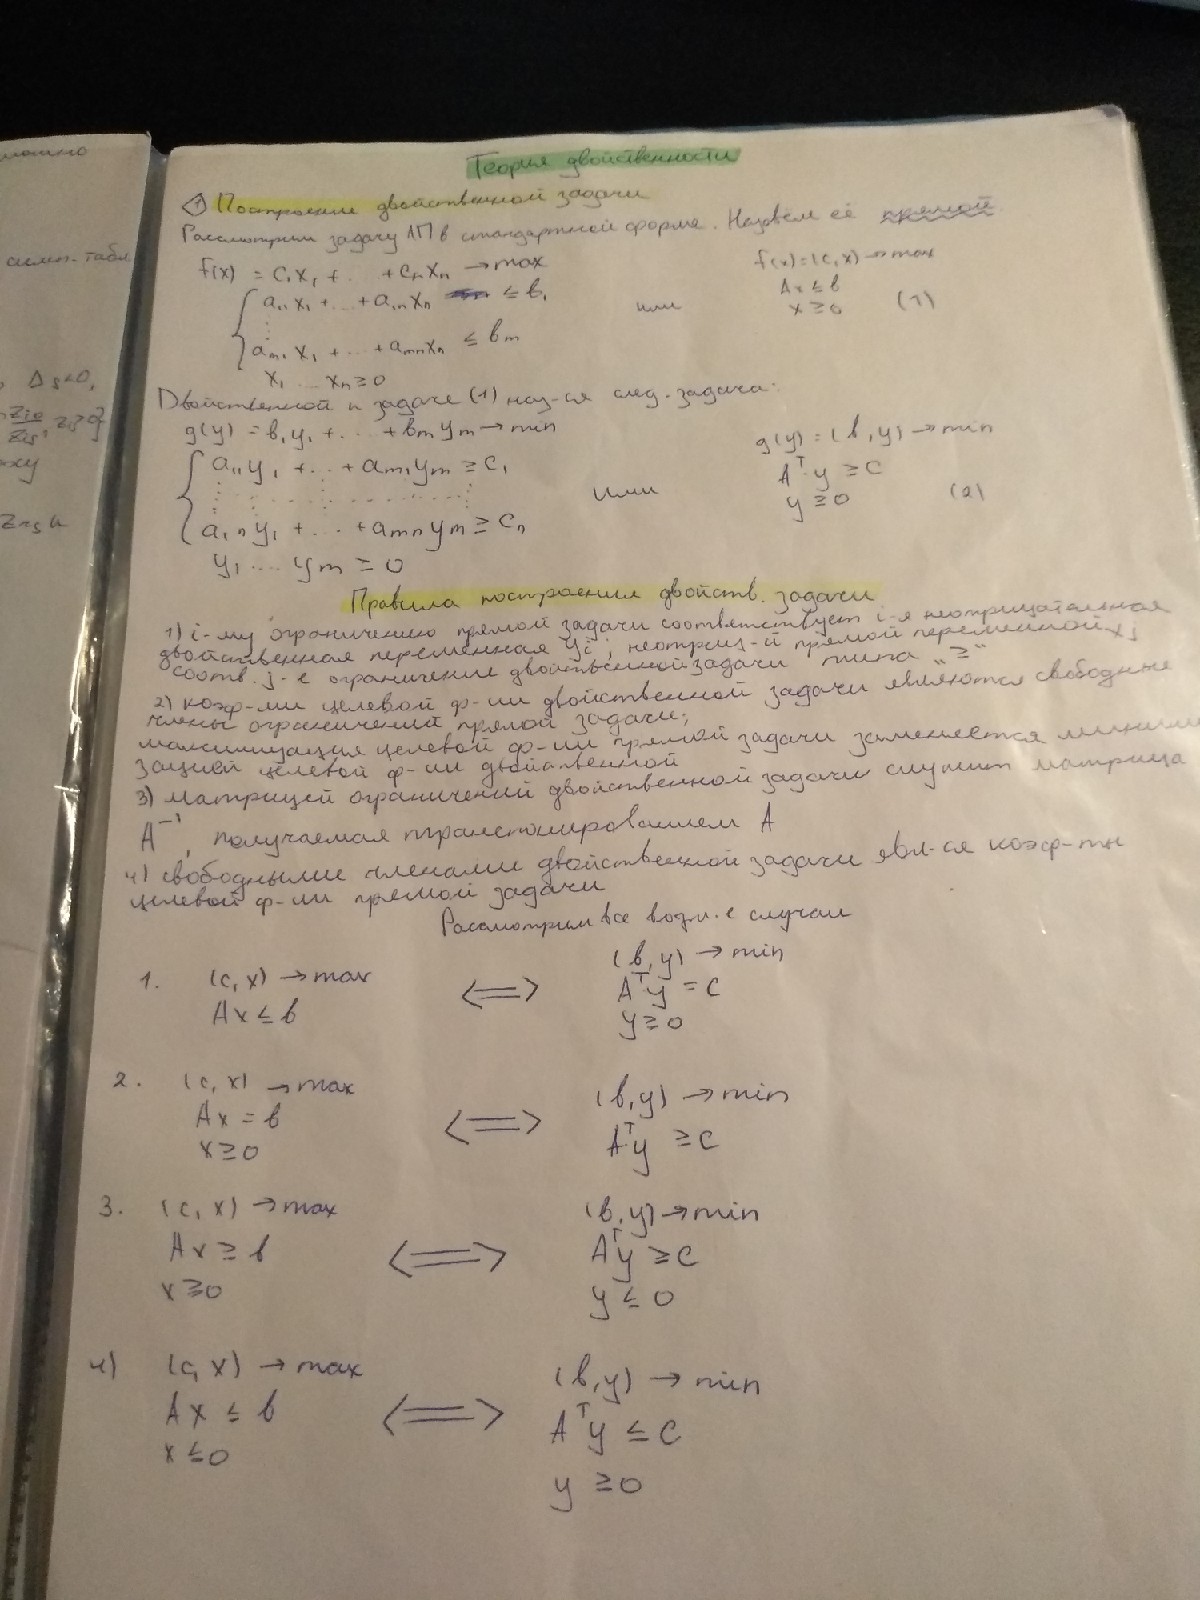 Теория двойственности
1 Построение двойственной задачи
Рассмотрим задачу ЛП в стандартной форме. Назовём её прямой
f(x) = c₁x₁ + ... + cₙxₙ → max
{ a₁₁x₁ + ... + a₁ₙxₙ ≤ b₁
aₘ₁x₁ + ... + aₘₙxₙ ≤ bₘ
x₁ ... xₙ ≥ 0
или
f(x) = (c, x) → max
Ax ≤ b
x ≥ 0 (1)
Двойственной к задаче (1) наз-ся след. задача:
g(y) = b₁y₁ + ... + bₘyₘ → min
{ a₁₁y₁ + ... + aₘ₁yₘ ≥ c₁
a₁ₙy₁ + ... + aₘₙyₘ ≥ cₙ
y₁ ... yₘ ≥ 0
или
g(y) = (b, y) → min
Aᵀy ≥ c
y ≥ 0 (2)
Правила построения двойств. задачи
1) i-му ограничению прямой задачи соответствует i-я неотрицательная
двойственная переменная yᵢ; неотриц-й прямой переменной xⱼ
соотв. j-е ограничение двойственной задачи типа „≥"
2) коэф-ми целевой ф-ии двойственной задачи являются свободные
члены ограничений прямой задачи;
максимизация целевой ф-ии прямой задачи заменяется миними
зацией целевой ф-ии двойственной
3) матрицей ограничений двойственной задачи служит матрица
A⁻¹, получаемая транспонированием A
4) свободными членами двойственной задачи явл-ся коэф-ты
целевой ф-ии прямой задачи
Рассмотрим все возм-е случаи
1. (c, x) → max
Ax ≤ b
<=>
(b, y) → min
Aᵀy = c
y ≥ 0
2. (c, x) → max
Ax = b
x ≥ 0
<=>
(b, y) → min
Aᵀy ≥ c
3. (c, x) → max
Ax ≥ b
x ≥ 0
<=>
(b, y) → min
Aᵀy ≥ c
y ≤ 0
4) (c, x) → max
Ax ≤ b
x ≤ 0
<=>
(b, y) → min
Aᵀy ≤ c
y ≥ 0